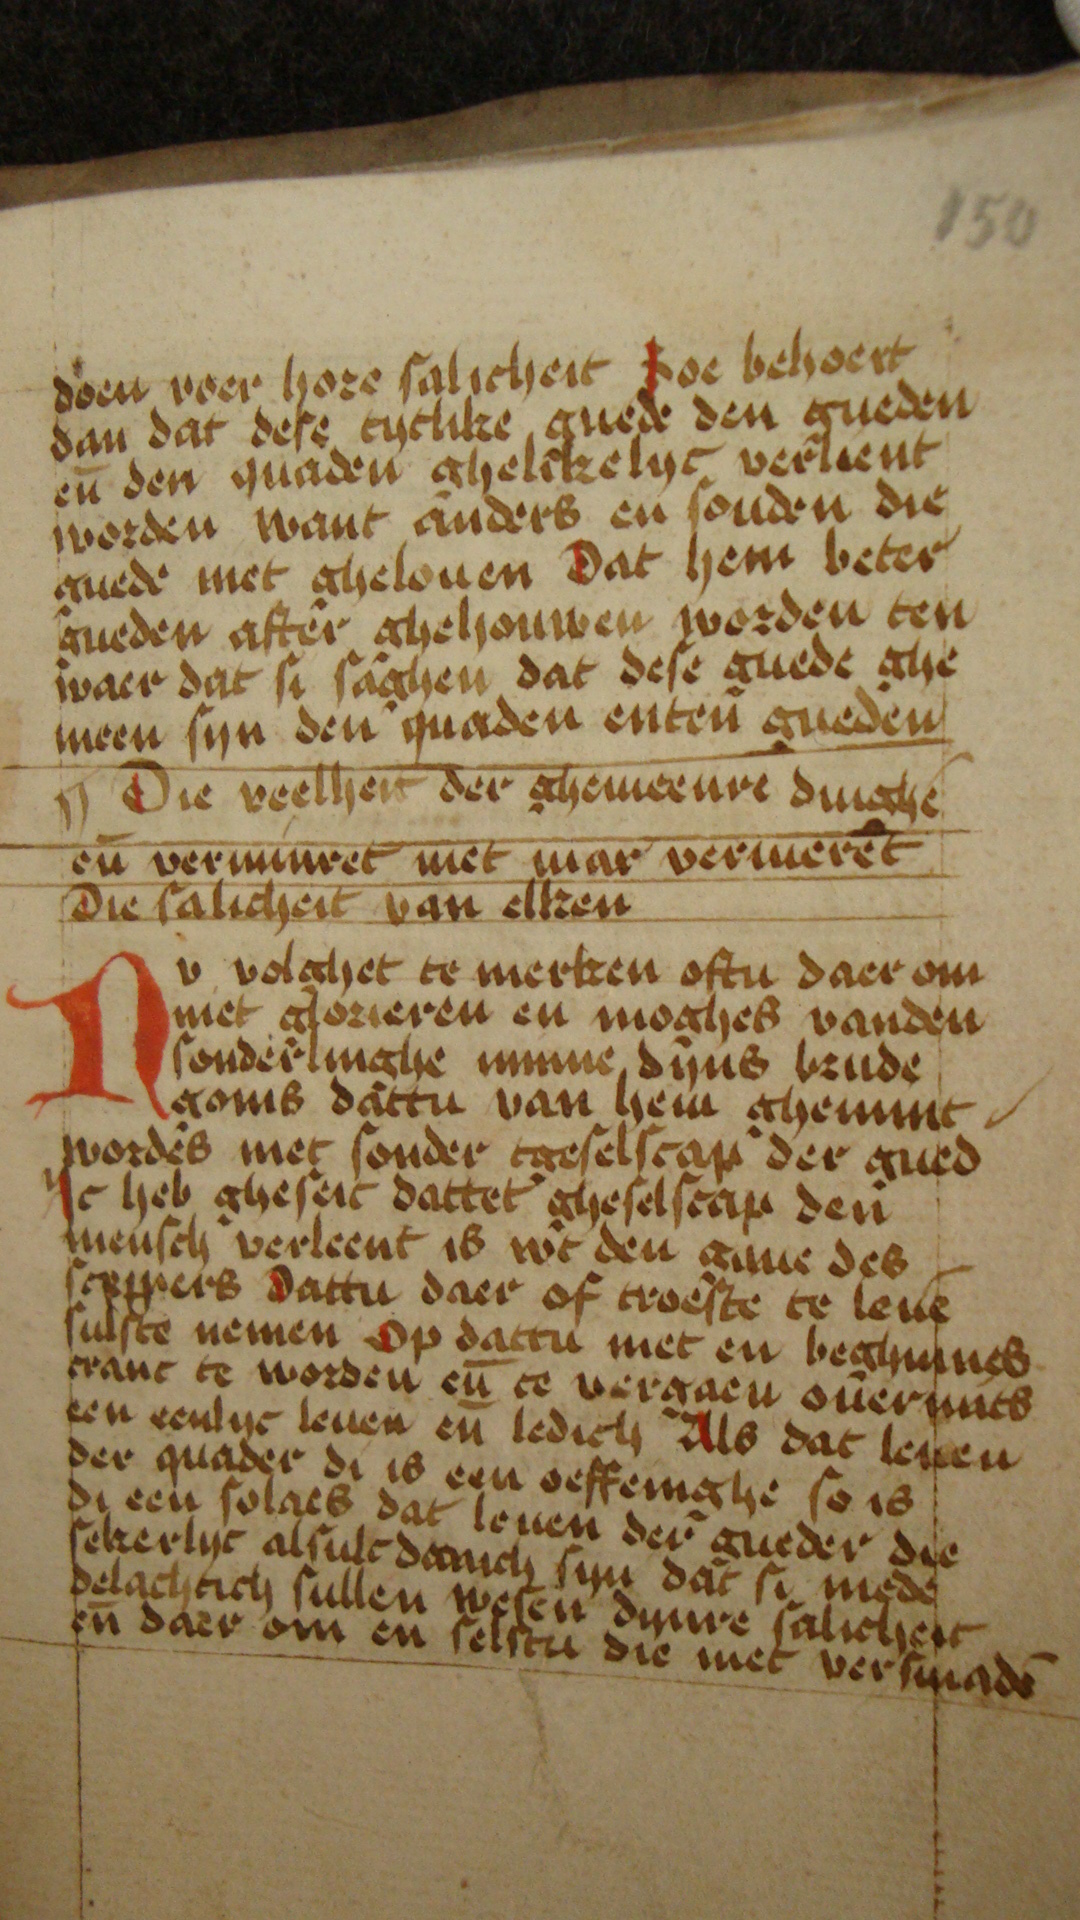 150
doen voer hore salicheit Hoe behoert
dan dat dese tytlike guede den gueden
en̄ den quaden ghelikelyc verlient
worden want anders en souden die
guede niet ghelouen Dat hem beter
gueden after ghehouwen worden ten
waer dat si saghen dat dese guede ghe
meen syn den quaden enten̄ gueden
Die veelheit der ghemeenre dinghē
en̄ verminret niet mar vermeret
Die salicheit van elken
Nv volghet te merken oftu daer om
niet glorieren en moghes vanden
sonderlinghe minne dyns brude
goms dattu van hem ghemint
wordes niet sonder tgeselscap der gued
Ic heb gheseit dattet gheselscap den
mensch verleent is wt den gaue des
sceppers Dattu daer of troeste te leuē
sulste nemen Op dattu niet en beghinnes
cranc te worden en̄ te vergaen ouermits
een eenlyc leuen en̄ ledich Als dat leuen
der quader di is een oeffeninghe so is
di een solaes dat leuen der gueder die
sekerlyc alsulc danich syn dat si mede
delachtich sullen wesen dynre salicheit
en̄ daer om en selstu die niet versmadē